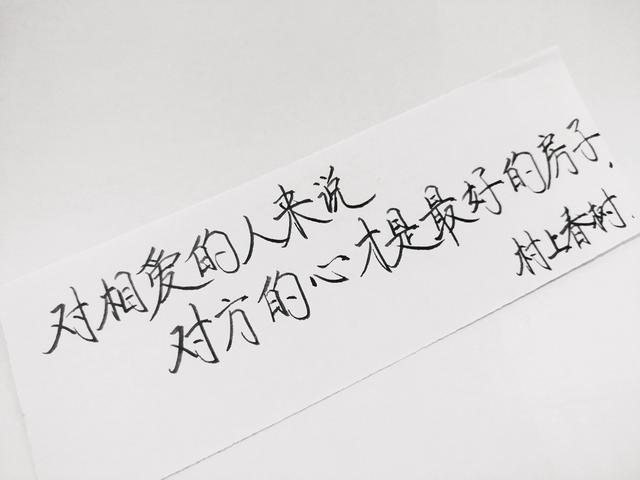 对相爱的人来说
对方的心才是最好的房子.
村上香树.